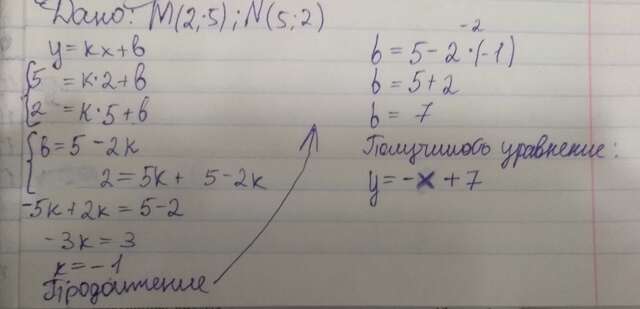 Дано: M(2;5); N(5;2)
y = kx + b
5 = k·2 + b
2 = k·5 + b
b = 5 - 2k
2 = 5k + 5 - 2k
-5k + 2k = 5 - 2
-3k = 3
k = -1
Продолжение
-2
b = 5 - 2·(-1)
b = 5 + 2
b = 7
Получилось уравнение:
y = -x + 7